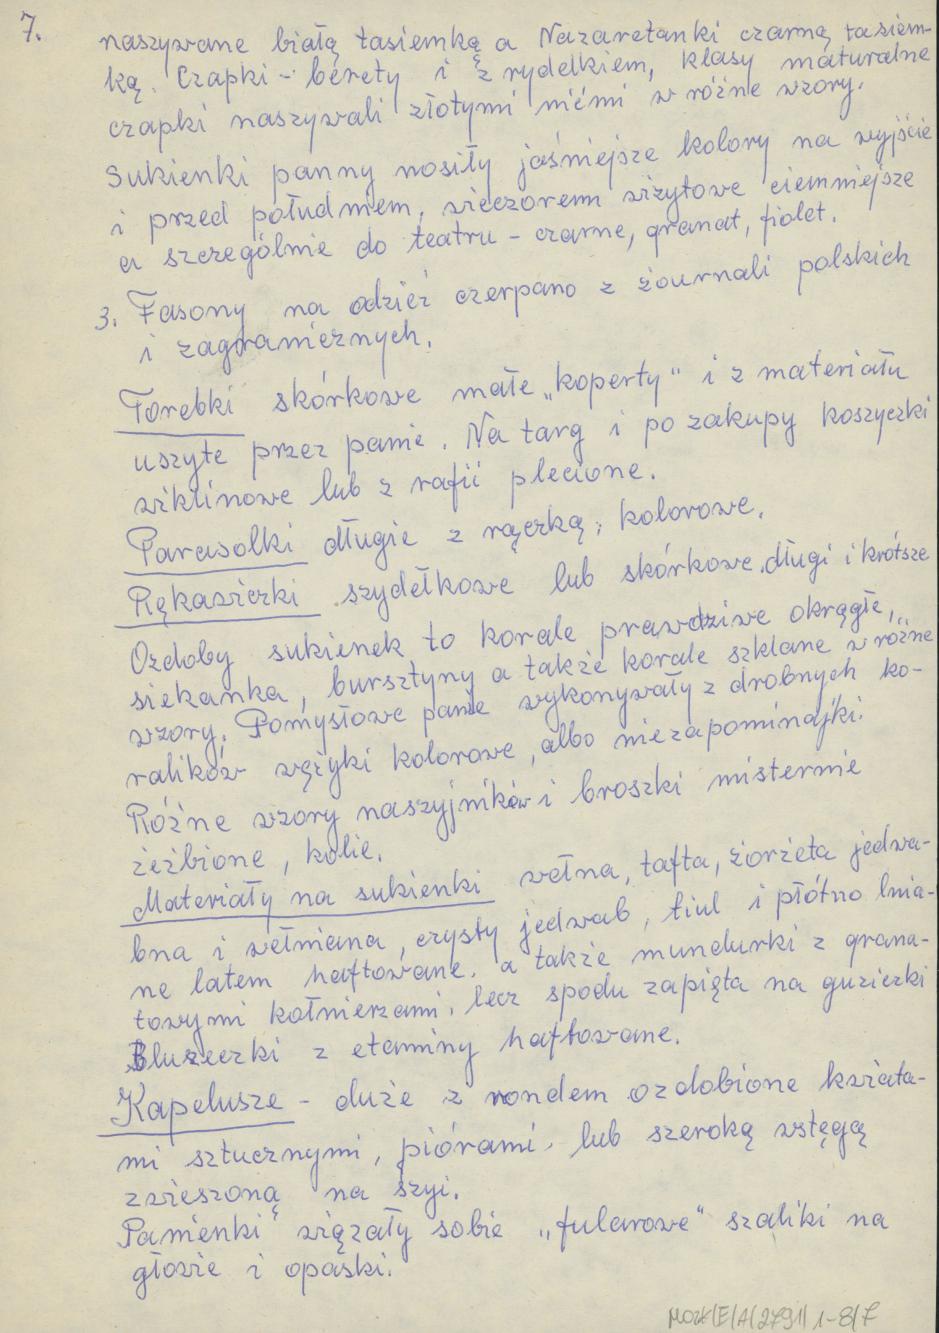 7.
naszywane białą tasiemką a Nazaretanki czarną tasiem-
ką. Czapki - berety i z rydelkiem, klasy maturalne
czapki naszywali złotymi nićmi w różne wzory.
Sukienki panny nosiły jaśniejsze kolory na wyjście
i przed południem, wieczorem wizytowe ciemniejsze
a szczególnie do teatru - czarne, granat, fiolet.
3. Fasony na odzież czerpano z żournali polskich
i zagranicznych.
Torebki skórkowe małe „koperty" i z materiału
uszyte przez panie. Na targ i po zakupy koszyczki
wiklinowe lub z rafii plecione.
Parasolki długie z rączką, kolorowe.
Rękawiczki szydełkowe lub skórkowe długi i krótsze
Ozdoby sukienek to korale prawdziwe okrągłe,
siekanka, bursztyny a także korale szklane w różne
wzory. Pomysłowe panie wykonywały z drobnych ko-
ralików wężyki kolorowe, albo niezapominajki.
Różne wzory naszyjników i broszki misternie
rzeźbione, kolie.
Materiały na sukienki wełna, tafta, żorżeta jedwa-
bna i wełniana, czysty jedwab, tiul i płótno lnia-
ne latem haftowane. a także mundurki z grana-
towymi kołnierzami, lecz spodu zapięta na guziczki
Bluzeczki z etaminy haftowane.
Kapelusze - duże z rondem ozdobione kwiata-
mi sztucznymi, piórami, lub szeroką wstęgą
zwieszoną na szyi.
Panienki wiązały sobie „fularowe" szaliki na
głowie i opaski.
MOZK/E/A/2791/1-8/7